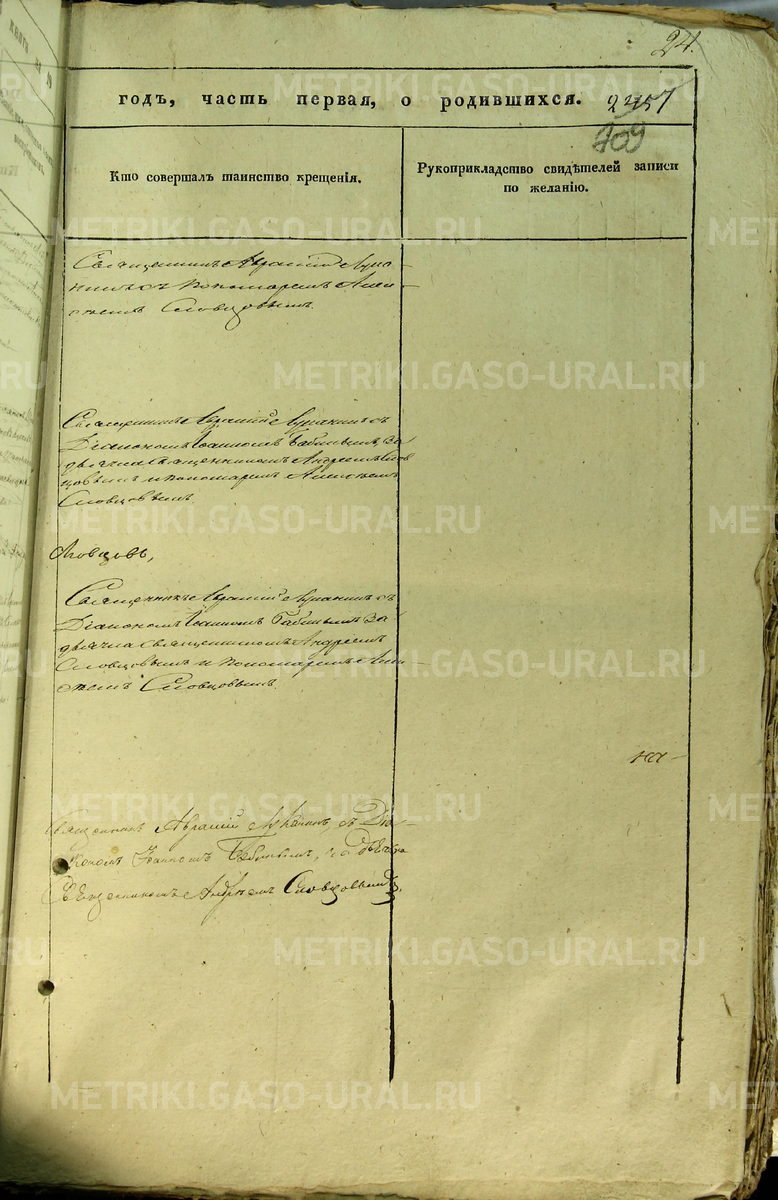 24.
годъ, часть первая, о родившихся. 2457
709
Кто совершалъ таинство крещенія.
Рукоприкладство свидѣтелей записи
по желанію.
Священникъ Авраамій Лука-
нинъ съ пономаремъ Алек-
сѣемъ Словцовымъ.
Священникъ Авраамій Луканинъ съ
Діакономъ Іоанномъ Бабинымъ, За
дьячка священникомъ Андреемъ Слов
цовымъ и пономаремъ Алексѣемъ
Словцовымъ
Словцовъ,
Священникъ Авраамій Луканинъ съ
Діакономъ Іоанномъ Бабинымъ За
дьячка священникомъ Андреемъ
Словцовымъ и пономаремъ Алек-
сѣемъ Словцовымъ.
священникъ Аврамій Луканинъ, съ Діа-
кономъ Іоанномъ Бабинымъ, за дьячка
Священникомъ Андрѣемъ Словцовымъ,
METRIKI.GASO-URAL.RU